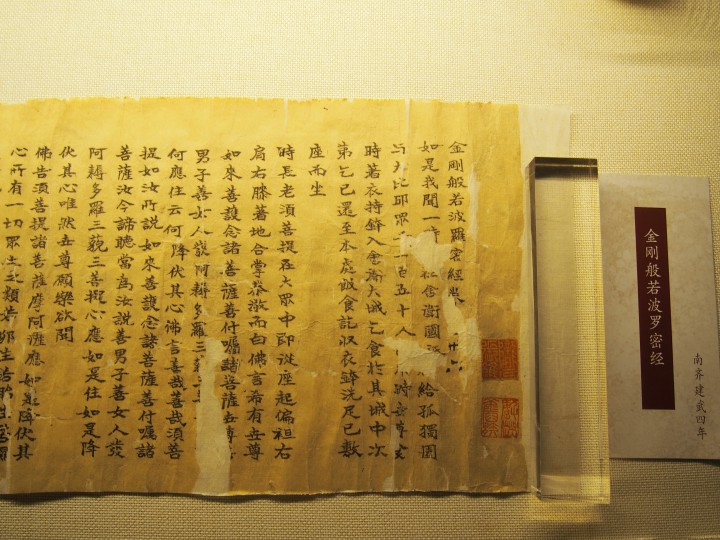 金剛般若波羅密經
如是我聞一時舍衛國給孤獨園
大比邱眾百五十人
時著衣持鉢入舍衛大城乞食於其城中次
第乞已還至本處飯食訖収衣鉢洗足已敷
座而坐
時長老湏菩提在大眾中即從座起偏袒右
肩右膝著地合掌恭敬而白佛言希有世尊
如來善護念諸菩薩善付囑諸菩薩世尊
男子善女人發阿耨多羅三藐三
何應住云何降伏其心佛言善哉善哉湏菩
提如汝所說如來善護念諸菩薩善付囑諸
菩薩汝今諦聽當為汝說善男子善女人發
阿耨多羅三藐三菩提心應如是住如是降
伏其心唯然世尊願樂欲聞
佛告湏菩提諸菩薩摩阿薩應如是降伏其
心所有一切眾生之類若卵生若胎生
金刚般若波罗密经
南齐建武四年